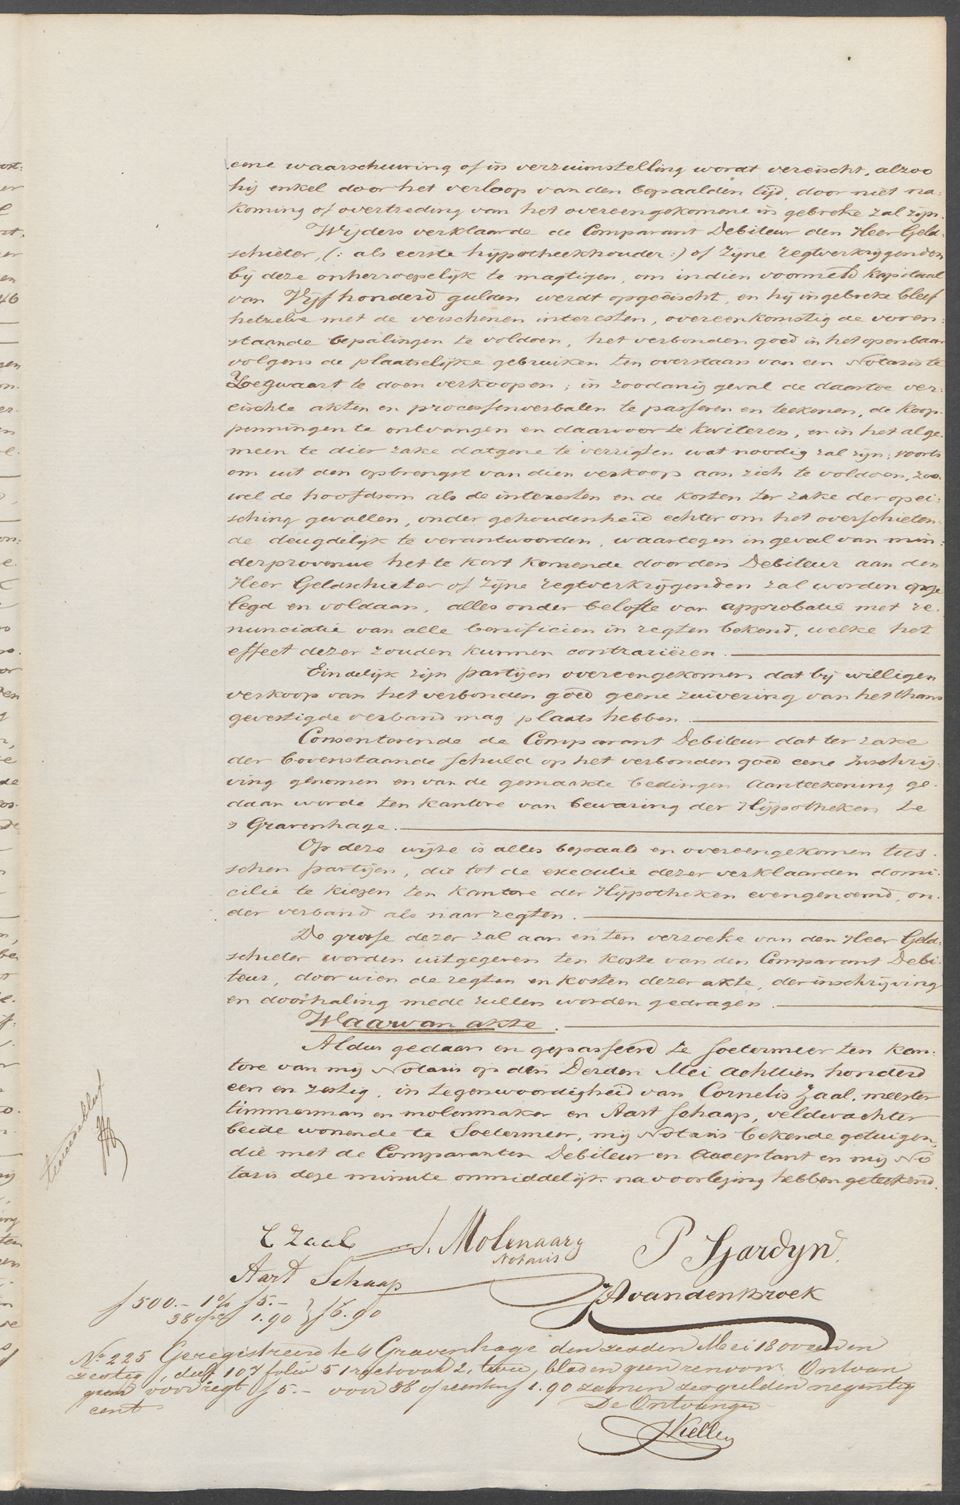 eene waarschuwing of in verzuimstelling wordt vereischt, alzoo
hij enkel door het verloop van den bepaalden tijd, door niet na-
koming of overtreding van het overeengekomene in gebreke zal zijn.
Wijders verklaarde de Comparant Debiteur den Heer Geld-
schieter, (: als eerste hypotheekhouder :) of zijne regtverkrijgenden
bij deze onherroepelijk te magtigen, om indien voormeld kapitaal
van Vijf honderd gulden werdt opgeëischt, en hij in gebreke bleef
hetzelve met de verschenen interesten, overeenkomstig de voren-
staande bepalingen te voldoen, het verbonden goed in het openbaar
volgens de plaatselijke gebruiken ten overstaan van een Notaris te
Zoegwaart te doen verkoopen; in zoodanig geval de daartoe ver-
eischte akten en processenverbalen te passeren en teekenen, de koop-
penningen te ontvangen en daarvoor te kwiteren, en in het alge-
meen te dier zake datgene te verrigten wat noodig zal zijn; voorts
om uit den opbrengst van dien verkoop aan zich te voldoen, zoo-
wel de hoofdsom als de interesten en de kosten ter zake der opei-
sching gevallen, onder gehoudenheid echter om het overschieten-
de deugdelijk te verantwoorden, waartegen in geval van min-
derprovenue het te kort komende door den Debiteur aan den
Heer Geldschieter of zijne regtverkrijgenden zal worden opge
legd en voldaan, alles onder belofte van approbatie met re-
nunciatie van alle beneficien in regten bekend, welke het
effect dezer zouden kunnen contrariëren.
Eindelijk zijn partijen overeengekomen dat bij willigen
verkoop van het verbonden goed geene zuivering van het thans
gevestigde verband mag plaats hebben.
Consenterende de Comparant Debiteur dat ter zake
der bovenstaande schuld op het verbonden goed eene inschrij-
ving genomen en van de gemaakte bedingen aanteekening ge-
daan worde ten kantore van bewaring der Hypotheken te
s Gravenhage.
Op deze wijze is alles bepaald en overeengekomen tus-
schen partijen, die tot de executie dezer verklaarden domi-
cilie te kiezen ten kantore der Hypotheken evengenoemd, on-
der verband als naar regten.
De grosse dezer zal aan en ten verzoeke van den Heer Geld-
schieter worden uitgegeven ten koste van den Comparant Debi-
teur, door wien de regten en kosten dezer akte, der inschrijving
en doorhaling mede zullen worden gedragen.
Waarvan akte.
Aldus gedaan en gepasseerd te Soetermeer ten kan-
tore van mij Notaris op den Derden Mei achttien honderd
een en zestig, in tegenwoordigheid van Cornelis Zaal, meester
timmerman en molenmaker en Aart Schaap, veldwachter
beide wonende te Soetermeer, mij Notaris bekende getuigen,
die met de Comparanten Debiteur en Acceptant en mij No
taris deze minute onmiddelijk na voorlezing hebben geteekend.
C Zaal J. Molenaar P Hardyn
Notaris
Aart Schaap
A van den Broek
ƒ 500.- 1 % ƒ 5.-
38 opc ƒ 1.90 } ƒ 6.90
No 225 Geregistreerd te s Gravenhage den zesden Mei 18 een en
zestig, deel 107 folio 51 recto vak 2, twee bladen geen renvooi. Ontvan
gen voor regt ƒ 5.- voor 38 opcenten ƒ 1.90 zamen zes gulden negentig
cent
De Ontvanger